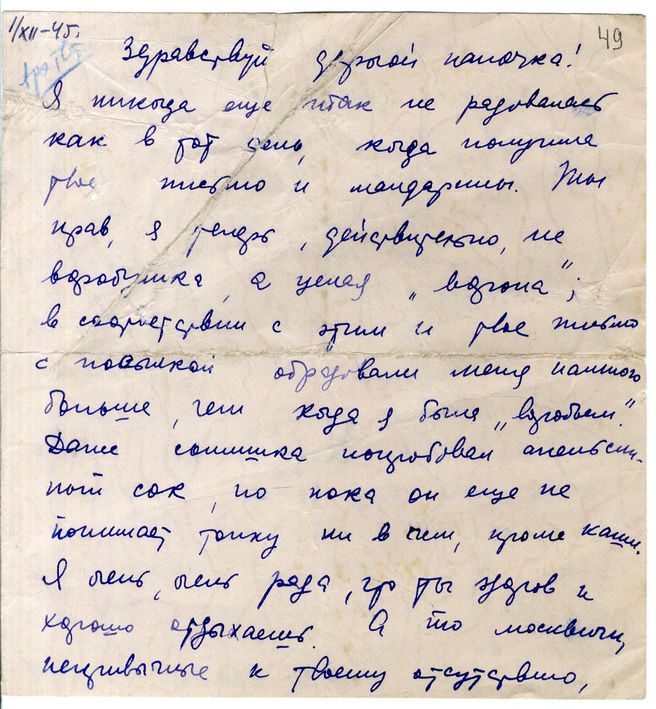 1/XII-45.
49
Здравствуй дорогой папочка!
Я никогда еще так не радовалась
как в тот день, когда получила
твое письмо и мандарины. Ты
прав, я теперь, действительно, не
воробушка, а целая „ворона“;
в соответствии с этим и твое письмо
с посылкой обрадовали меня намного
больше, чем когда я была „воробьем“.
Даже сынишка попробовал апельсин-
ный сок, но пока он еще не
понимает толку ни в чем, кроме каши.
Я очень, очень рада, что ты здоров и
хорошо отдыхаешь. А то москвичи,
непривычные к твоему отсутствию,